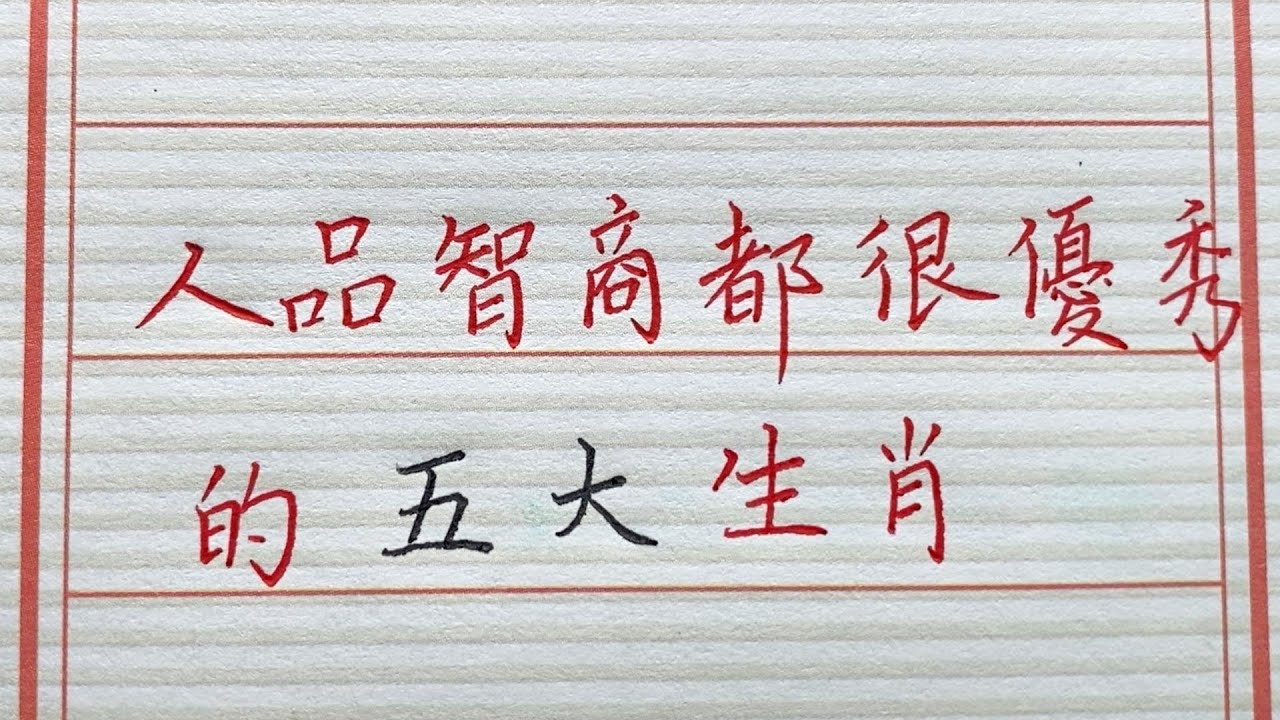 人品智商都很優秀
的五大生肖